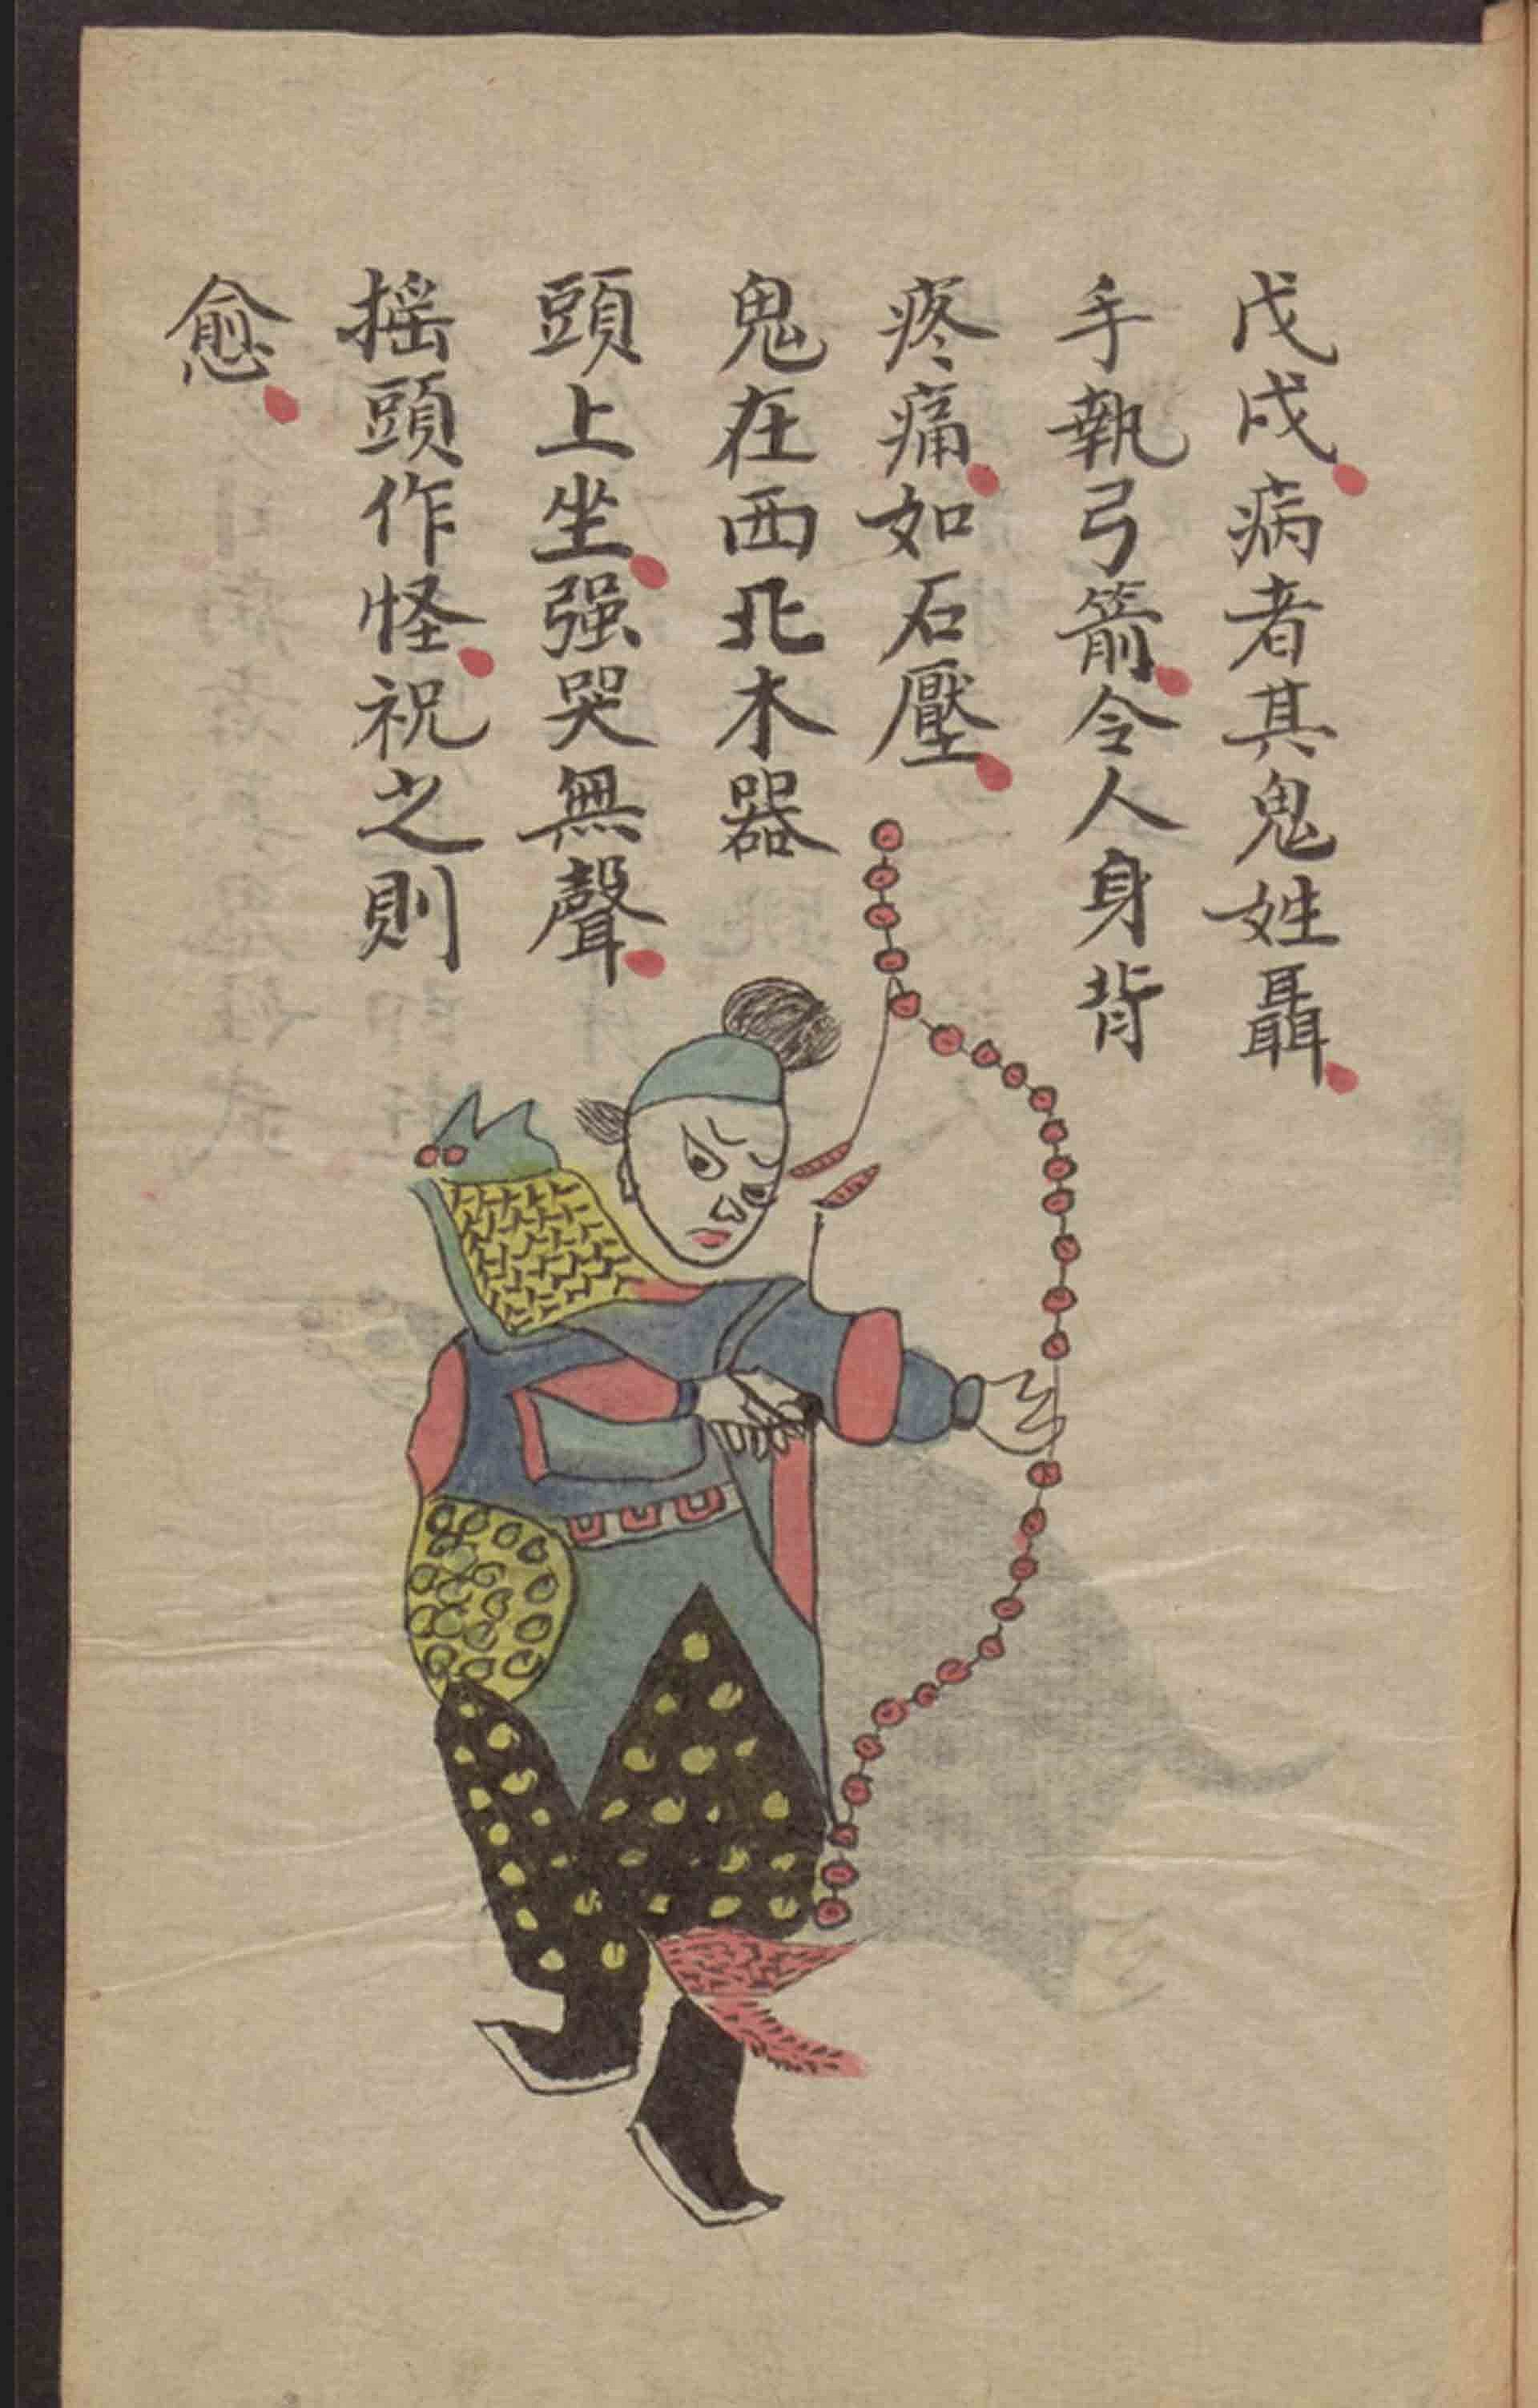 戊戌病者其鬼姓聶
手執弓箭令人身背
疼痛如石壓
鬼在西北木器
頭上坐强哭無聲
摇頭作怪祝之則
愈